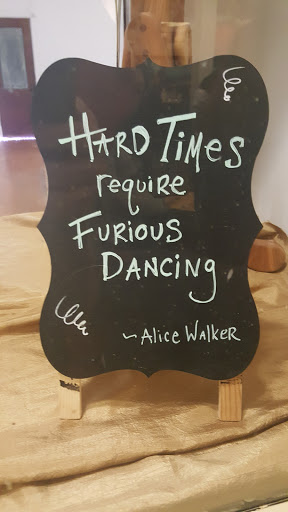 HARD TIMES
require
FURIOUS
DANCING
~ALICE WALKER